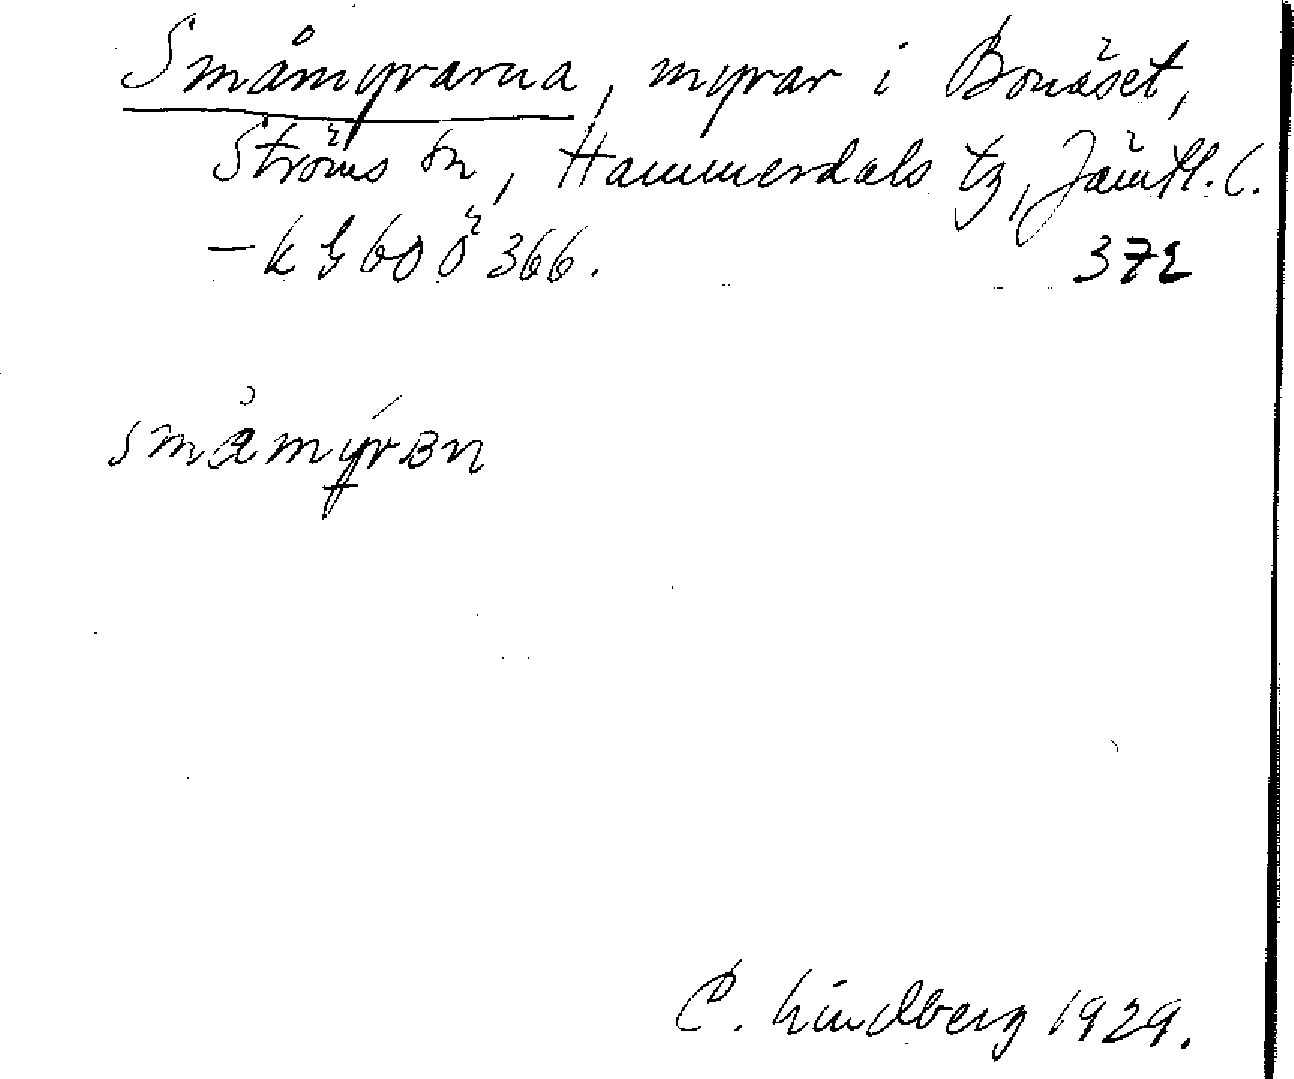 Småmyrarna, myrar i Bonäset,
Ströms sn, Hammerdals tg, Jämtl. l.
— k G 60 Ö 366. 372
småmýrɐn
C. Lindberg 1929.